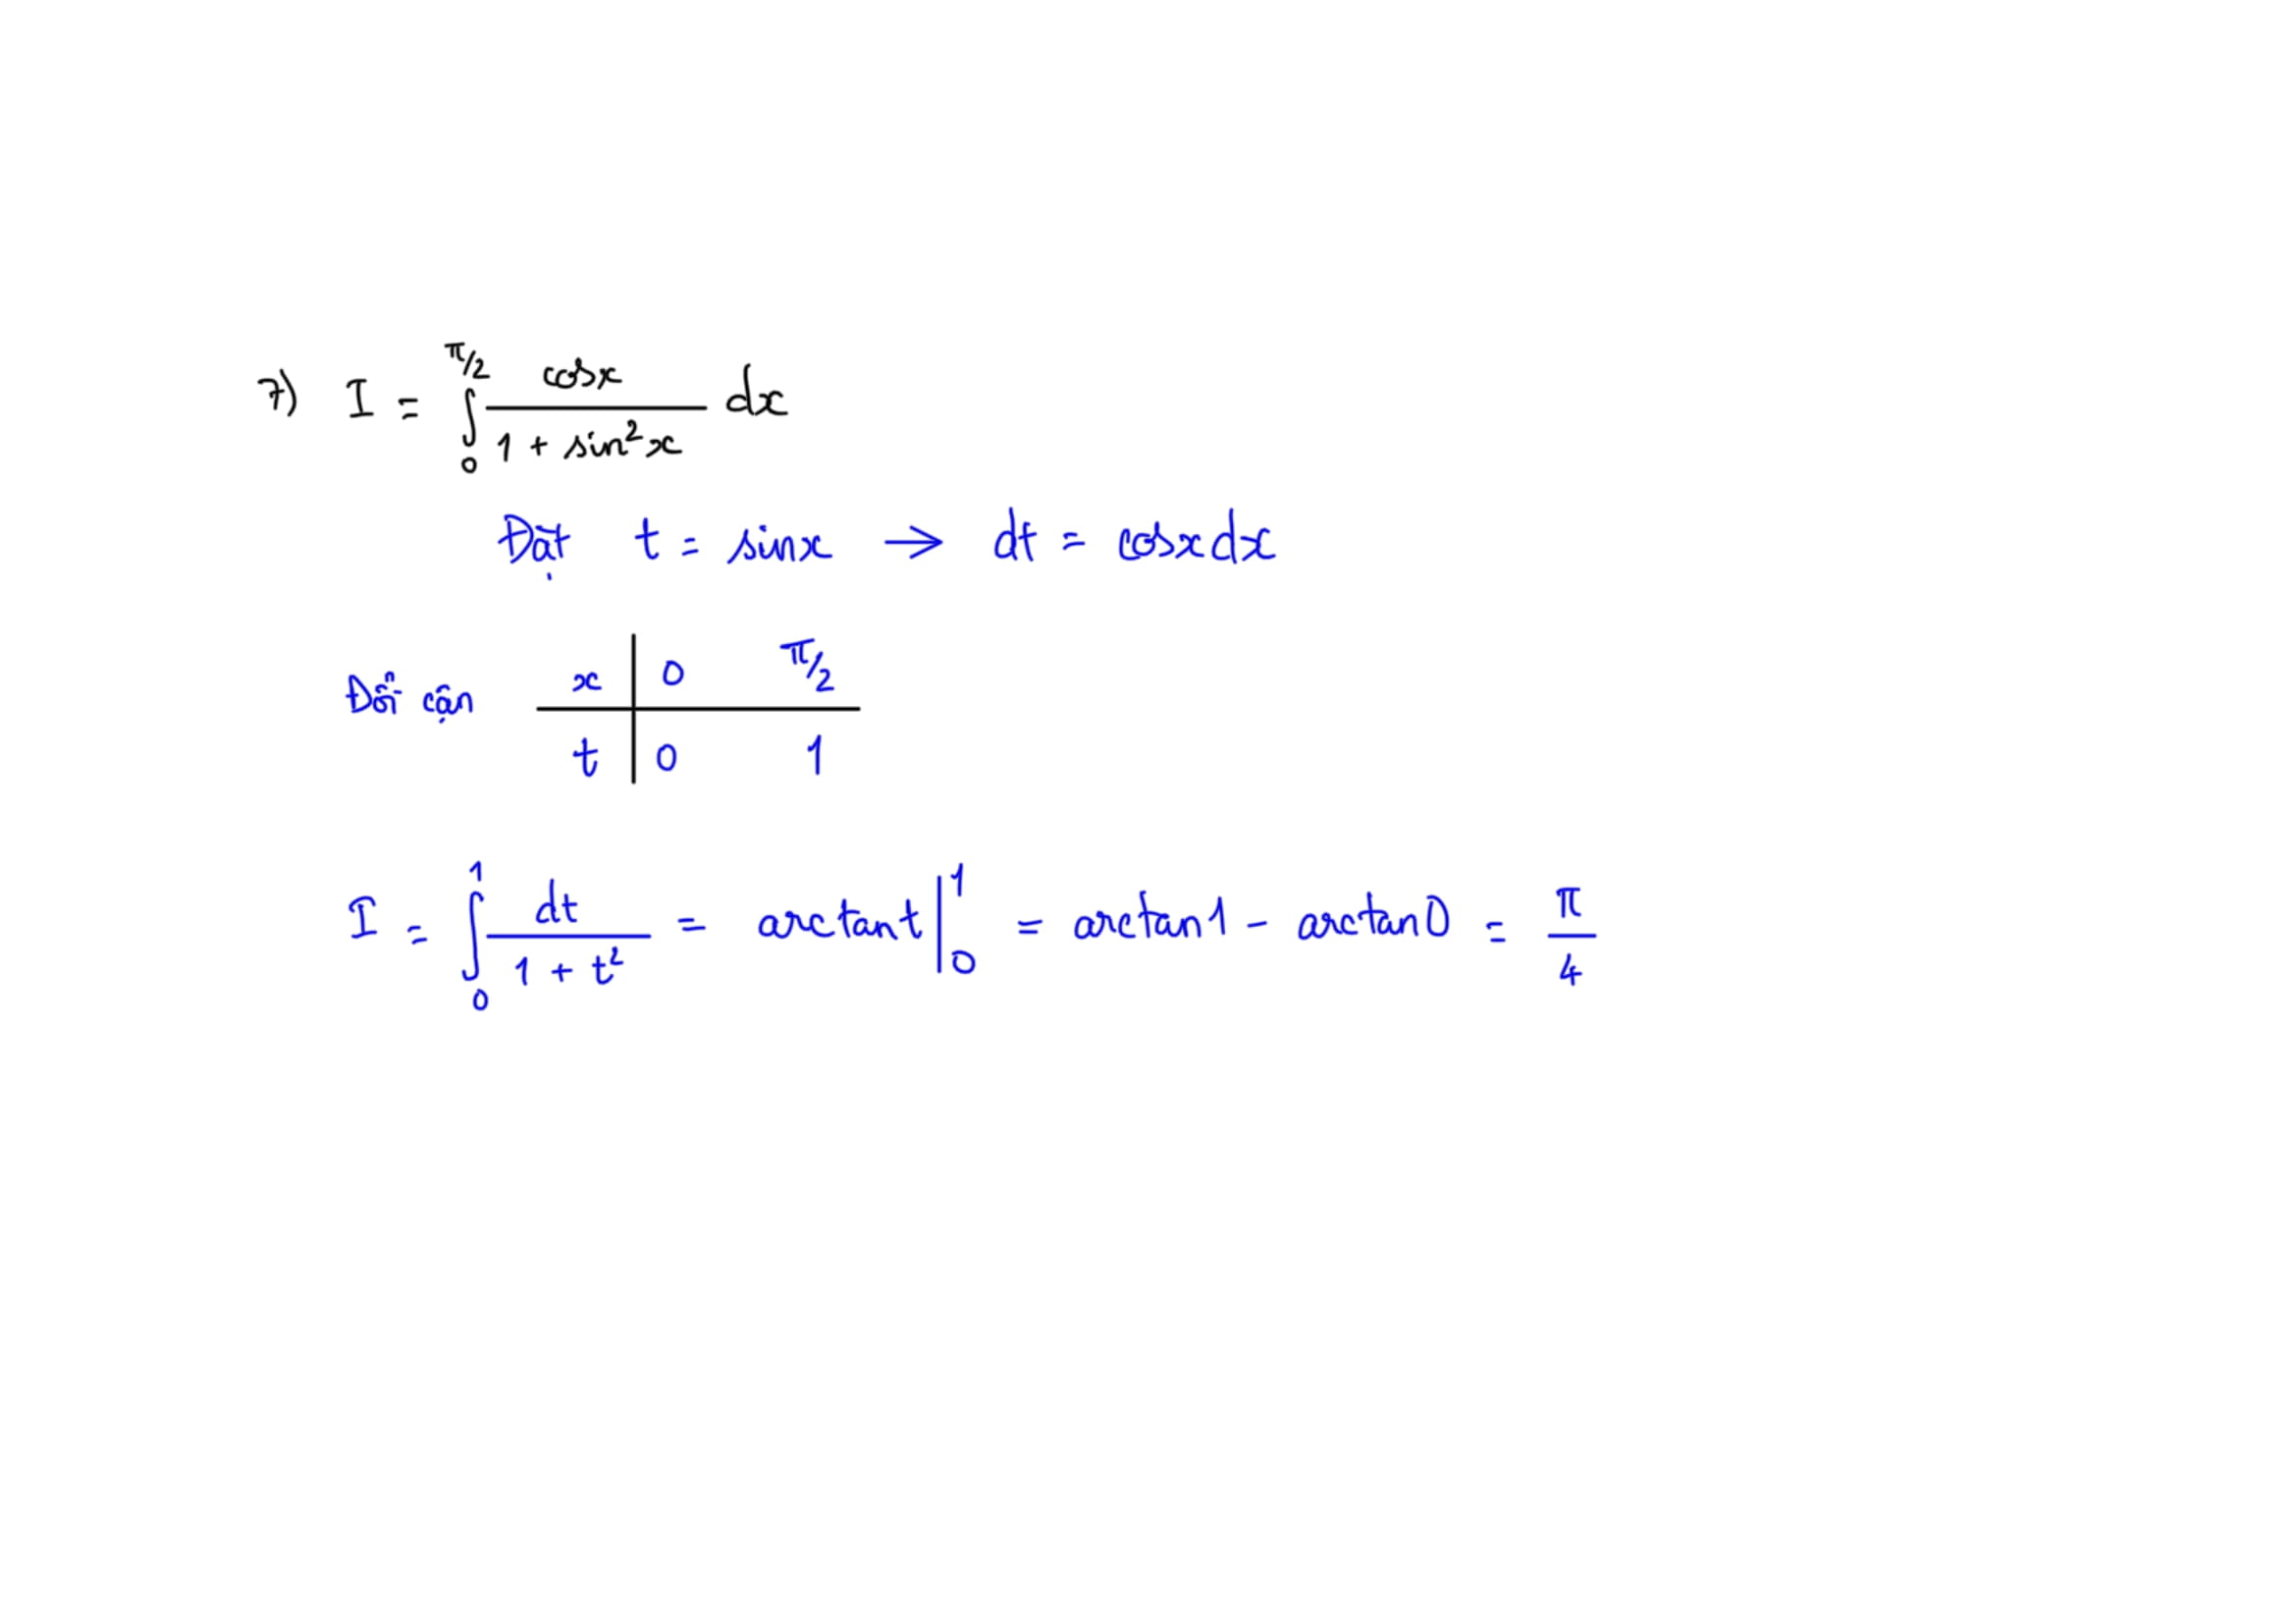 7) I = ∫₀^{π/2} cosx / (1 + sin²x) dx
Đặt t = sinx → dt = cosxdx
Đổi cận x | 0 π/2
t | 0 1
I = ∫₀¹ dt / (1 + t²) = arctant |₀¹ = arctan1 - arctan0 = π/4